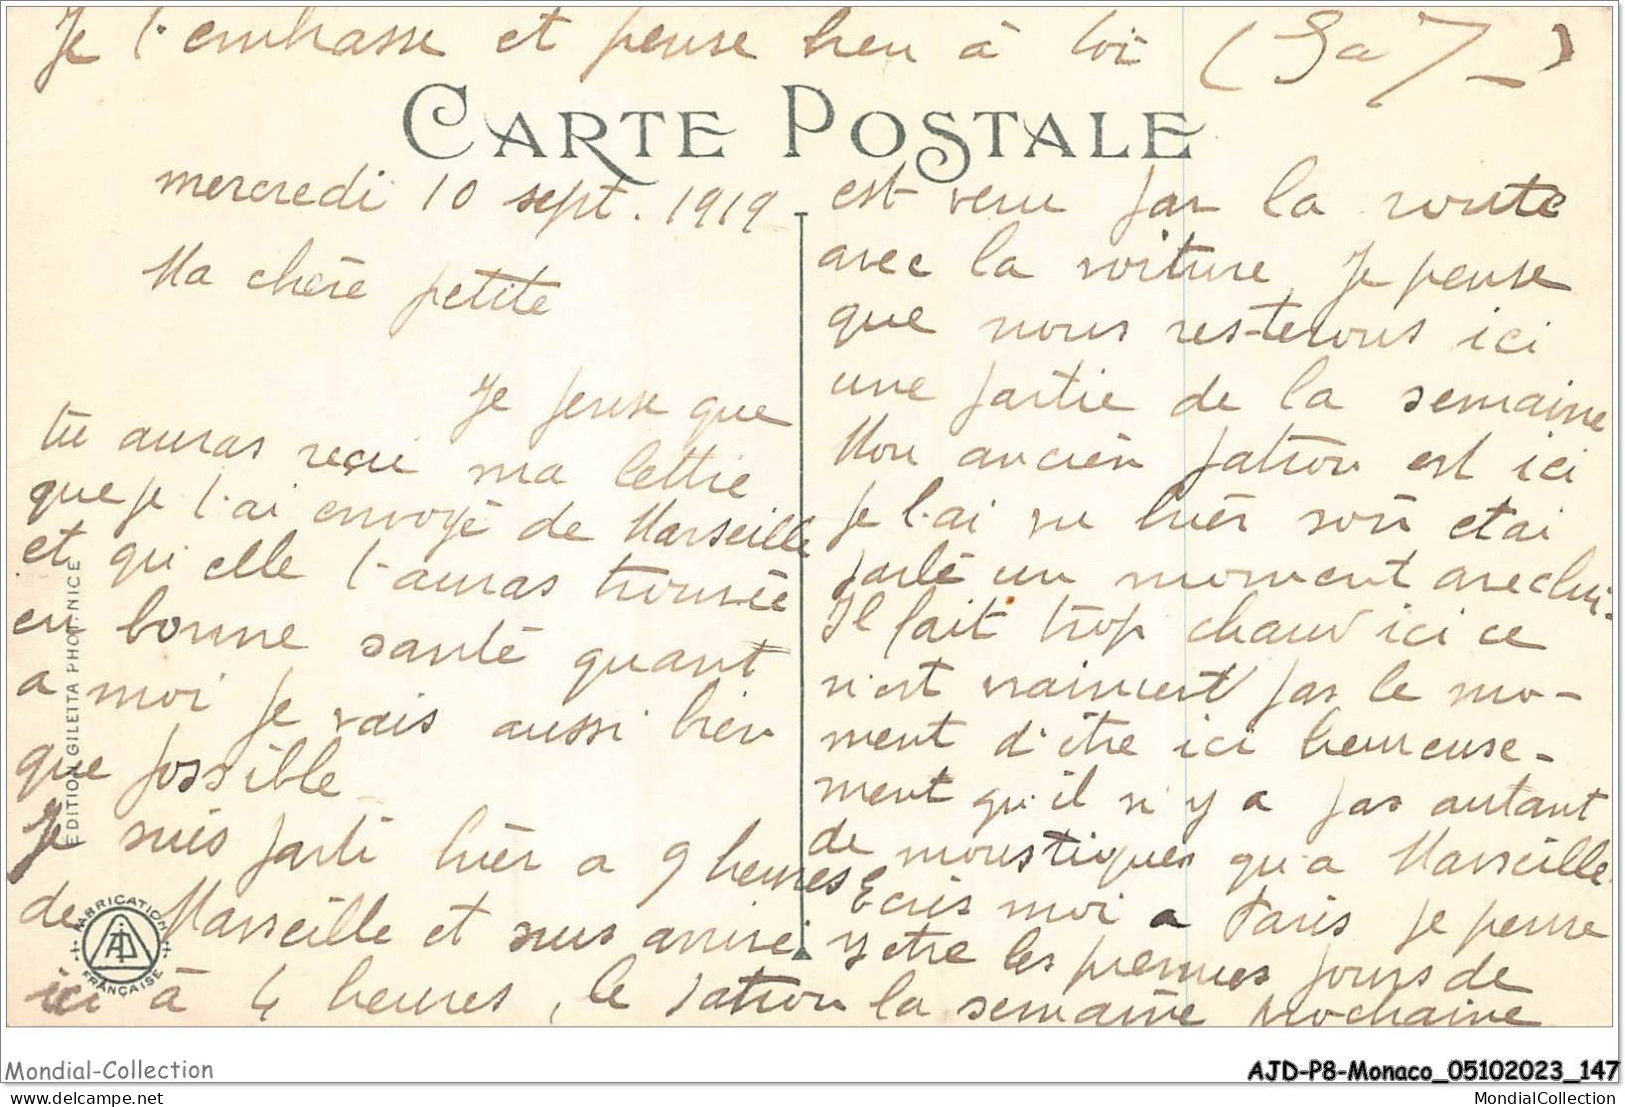 Je t'embrasse et pense bien à toi (
CARTE POSTALE
mercredi 10 sept. 1919
Ma chère petite
Je pense que
tu auras reçu ma lettre
que je t'ai envoyé de Marseille
et qu'elle t'auras trouvée
en bonne santé quant
a moi je vais aussi bien
que possible
Je suis parti hièr a 9 heures
de Marseille et suis arrivé
ici à 4 heures, le patron
est venu par la route
avec la voiture, Je pense
que nous resterons ici
une partie de la semaine
Mon ancièn patron est ici
je l'ai vu hièr soir et ai
parlé un moment avec lui.
Il fait trop chaud ici ce
n'est vraiment pas le mo-
ment d'être ici heureuse-
ment qu'il n'y a pas autant
de moustiques qu'a Marseille.
Ecris moi a Paris je pense
y etre les premiers jours de
la semaine prochaine
EDITION GILETTA PHOT. NICE
FABRICATION
FRANÇAISE
Mondial-Collection
AJD-P8-Monaco_05102023_147
www.mondialcollection.com
MondialCollection